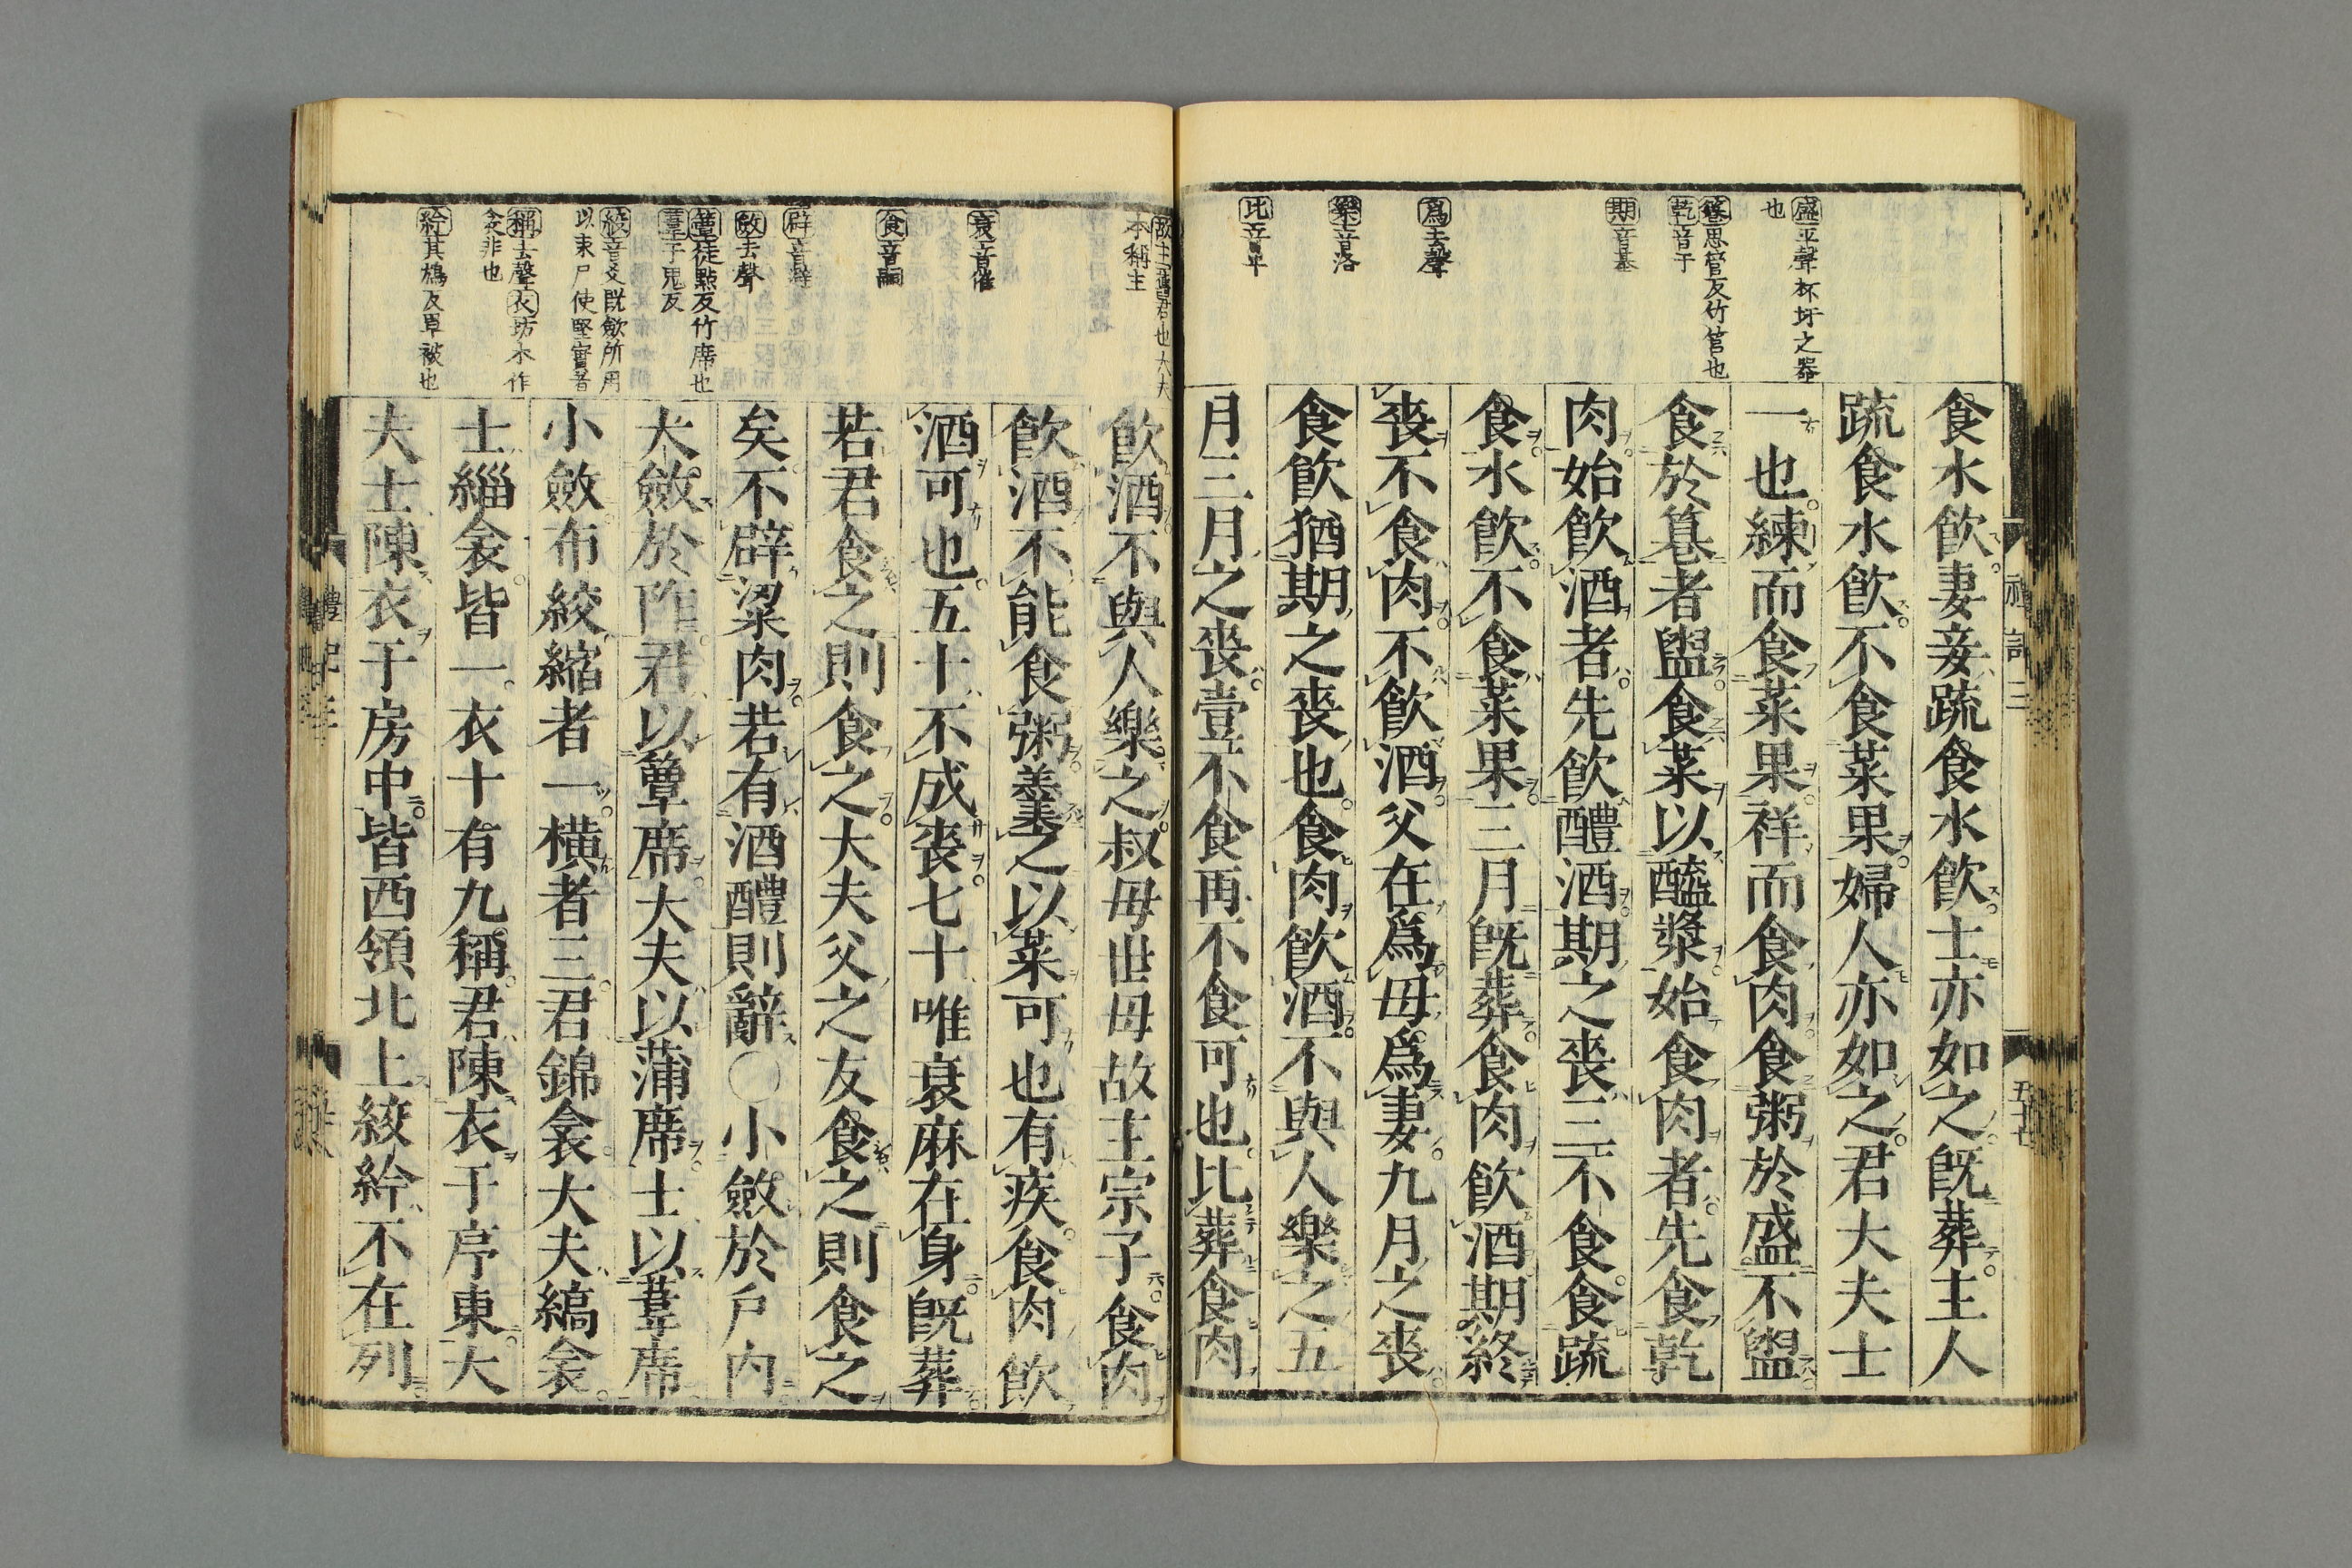 盛平聲杯圩之器
也
篹思管反竹筥也
乾音干
期音基
爲去聲
樂音洛
比音畀
食水飮妻妾疏食水飮士亦如之既葬主人
疏食水飮不食菜果婦人亦如之君大夫士
一也練而食菜果祥而食肉食粥於盛不盥
食於篹者盥食菜以醯漿始食肉者先食乾
肉始飮酒者先飮醴酒期之喪三不食食疏
食水飮不食菜果三月既葬食肉飮酒期終
喪不食肉不飮酒父在爲母爲妻九月之喪
食飮猶期之喪也食肉飮酒不與人樂之五
月三月之喪壹不食再不食可也比葬食肉
禮記三
五十七
故主舊君也大夫
本稱主
衰音催
食音嗣
辟音避
斂去聲
簟徒點反竹席也
葦于鬼反
絞音爻既斂所用
以束尸使堅實者
稱去聲衣坊本作
衾非也
紟其鴆反單被也
飮酒不與人樂之叔母世母故主宗子食肉
飮酒不能食粥羹之以菜可也有疾食肉飮
酒可也五十不成喪七十唯衰麻在身既葬
若君食之則食之大夫父之友食之則食之
矣不辟粱肉若有酒醴則辭〇小斂於戶內
大斂於阼君以簟席大夫以蒲席士以葦席
小斂布絞縮者一橫者三君錦衾大夫縞衾
士緇衾皆一衣十有九稱君陳衣于序東大
夫士陳衣于房中皆西領北上絞紟不在列
禮記三